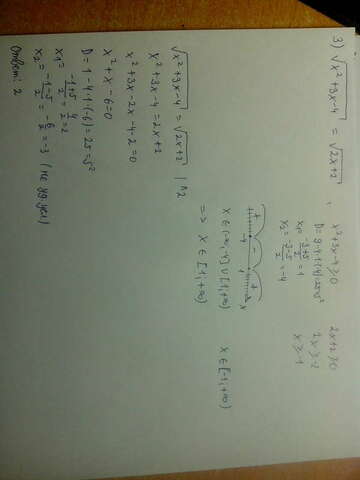 3) √(x² + 3x - 4) = √(2x + 2) ,
x² + 3x - 4 ≥ 0
D = 9 - 4·1·(-4) = 25 = 5²
x₁ = (-3+5)/2 = 1
x₂ = (-3-5)/2 = -4
+ - +
-4 1 x
x ∈ (-∞, -4] ∪ [1; +∞)
=> x ∈ [1; +∞)
2x + 2 ≥ 0
2x ≥ -2
x ≥ -1
x ∈ [-1; +∞)
√(x² + 3x - 4) = √(2x + 2) | ^2
x² + 3x - 4 = 2x + 2
x² + 3x - 2x - 4 - 2 = 0
x² + x - 6 = 0
D = 1 - 4·1·(-6) = 25 = 5²
x₁ = (-1+5)/2 = 4/2 = 2
x₂ = (-1-5)/2 = -6/2 = -3 (не уд. усл)
Ответ: 2